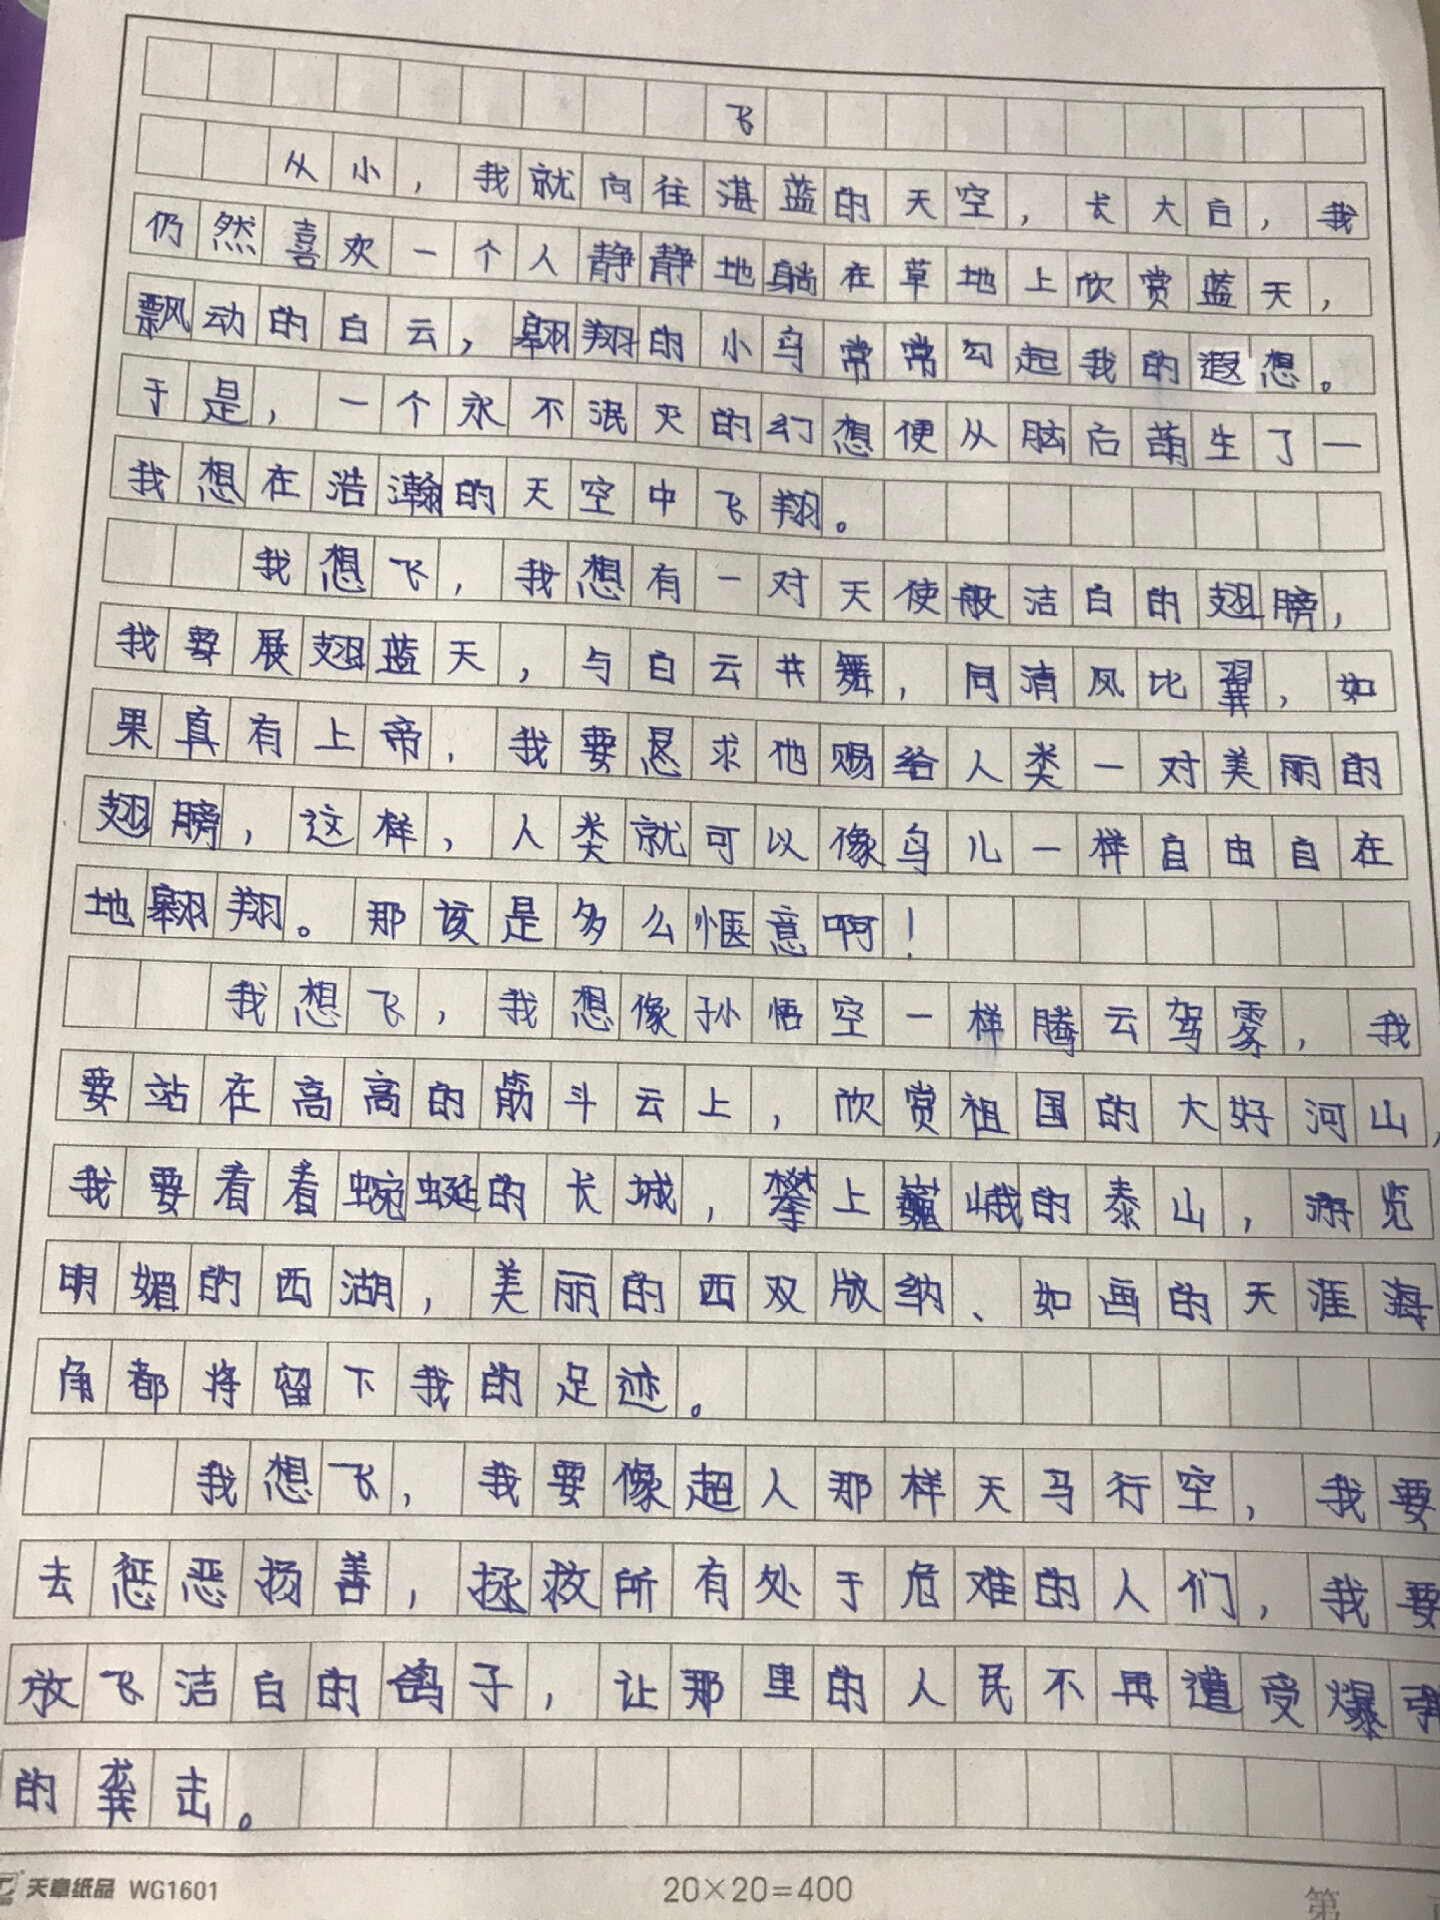 飞
从小，我就向往湛蓝的天空，长大后，我
仍然喜欢一个人静静地躺在草地上欣赏蓝天，
飘动的白云，翱翔的小鸟常常勾起我的遐想。
于是，一个永不泯灭的幻想便从脑后萌生了一
我想在浩瀚的天空中飞翔。
我想飞，我想有一对天使般洁白的翅膀，
我要展翅蓝天，与白云共舞，同清风比翼，如
果真有上帝，我要恳求他赐给人类一对美丽的
翅膀，这样，人类就可以像鸟儿一样自由自在
地翱翔。那该是多么惬意啊！
我想飞，我想像孙悟空一样腾云驾雾，我
要站在高高的筋斗云上，欣赏祖国的大好河山，
我要看看蜿蜒的长城，攀上巍峨的泰山，游览
明媚的西湖，美丽的西双版纳、如画的天涯海
角都将留下我的足迹。
我想飞，我要像超人那样天马行空，我要
去惩恶扬善，拯救所有处于危难的人们，我要
放飞洁白的鸽子，让那里的人民不再遭受爆
的袭击。
天章纸品 WG1601
20×20=400
第